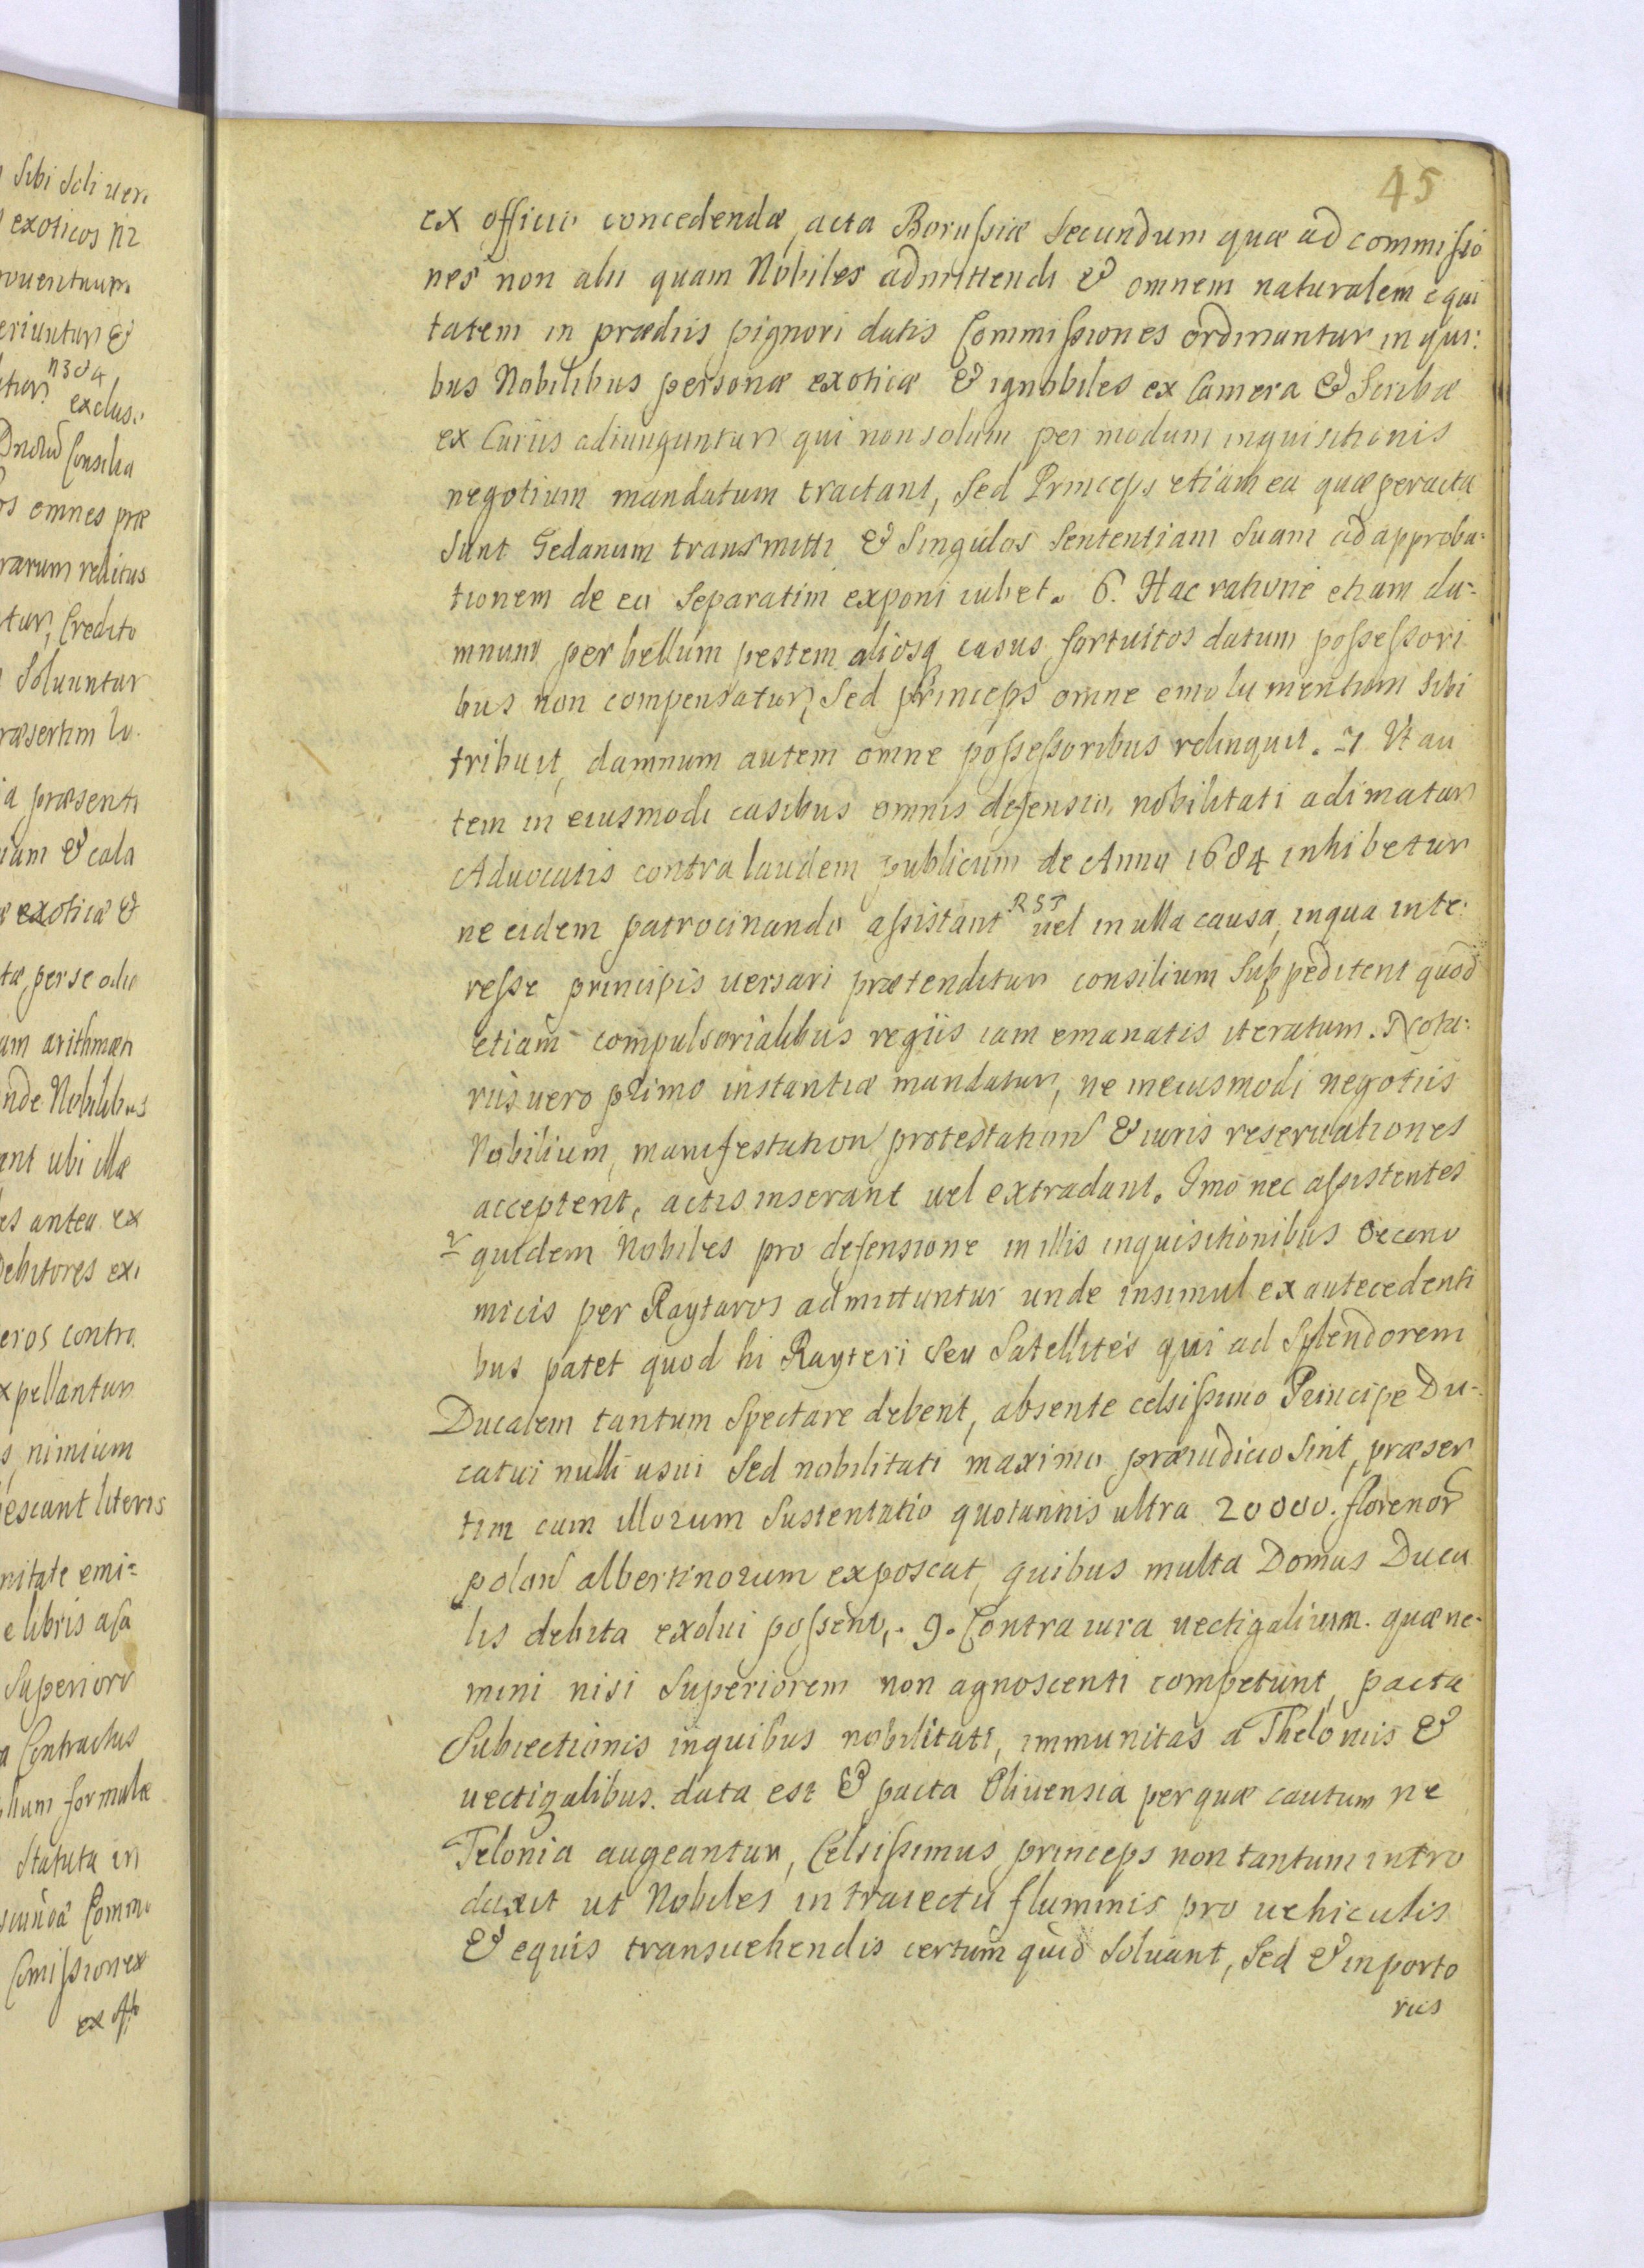 45
ex officio concedendæ, acta Borussiæ Secundum quæ ad commissio
nes non alii quam Nobiles admittendi & omnem naturalem equi
tatem in prædiis pignori datis Commissiones ordinantur in qui:
bus Nobilibus personæ exoticæ & ignobiles ex Camera & Scribæ
ex Curiis adiunguntur qui non solum per modum inquisitionis
negotium mandatum tractant, Sed Princeps etiam ea quæ peracta
Sunt Gedanum transmitti & Singulos Sententiam Suam ad approba:
tionem de eo Separatim exponi iubet. 6. Hac ratione etiam da=
mnum per bellum pestem aliosq casus fortuitos datum possessori
bus non compensatur, Sed princeps omne emolumentum Sibi
tribuit, damnum autem omne possessoribus relinquit. 7 Ut au
tem in eiusmodi casibus omnis defensio, nobilitati adimatur
Advocatis contra laudem publicum de Anno 1684 inhibetur
ne eidem patrocinando assistant RST vel in ulla causa, in qua inte:
resse principis versari prætenditur consilium Suppeditent quod
etiam compulsorialibus regiis iam emanatis iteratum. Nota:
riis vero primo instantiæ mandatur, ne in eiusmodi negotiis
Nobilium, manifestation protestation & iuris reservationes
acceptent, actis inserant vel extradant. Imo nec assistentes
quidem Nobiles pro defensione in illis inquisitionibus Oecono
micis per Raytaros admittuntur unde insimul ex antecedenti
bus patet quod hi Rayteri Seu Satellites qui ad Splendorem
Ducalem tantum Spectare debent, absente celsissimo Principe Du-
catui nulli usui Sed nobilitati maximo præiudicio Sint, præser
tim cum illorum Sustentatio quotannis ultra 20000. florenor
polon albertinorum exposcat, quibus multa Domus Duca
lis debita exolui possent. 9. Contra iura vectigalium. quæ ne-
mini nisi Superiorem non agnoscenti competunt, pacta
Subiectionis in quibus nobilitati, immunitas a Theloniis &
vectigalibus. data est & pacta Olivensia per quæ cautum ne
Telonia augeantur, Celsissimus princeps non tantum intro
duxit ut Nobiles in traiectu fluminis pro vehiculis
& equis transvehendis certum quid Solvant, Sed & in porto
riis